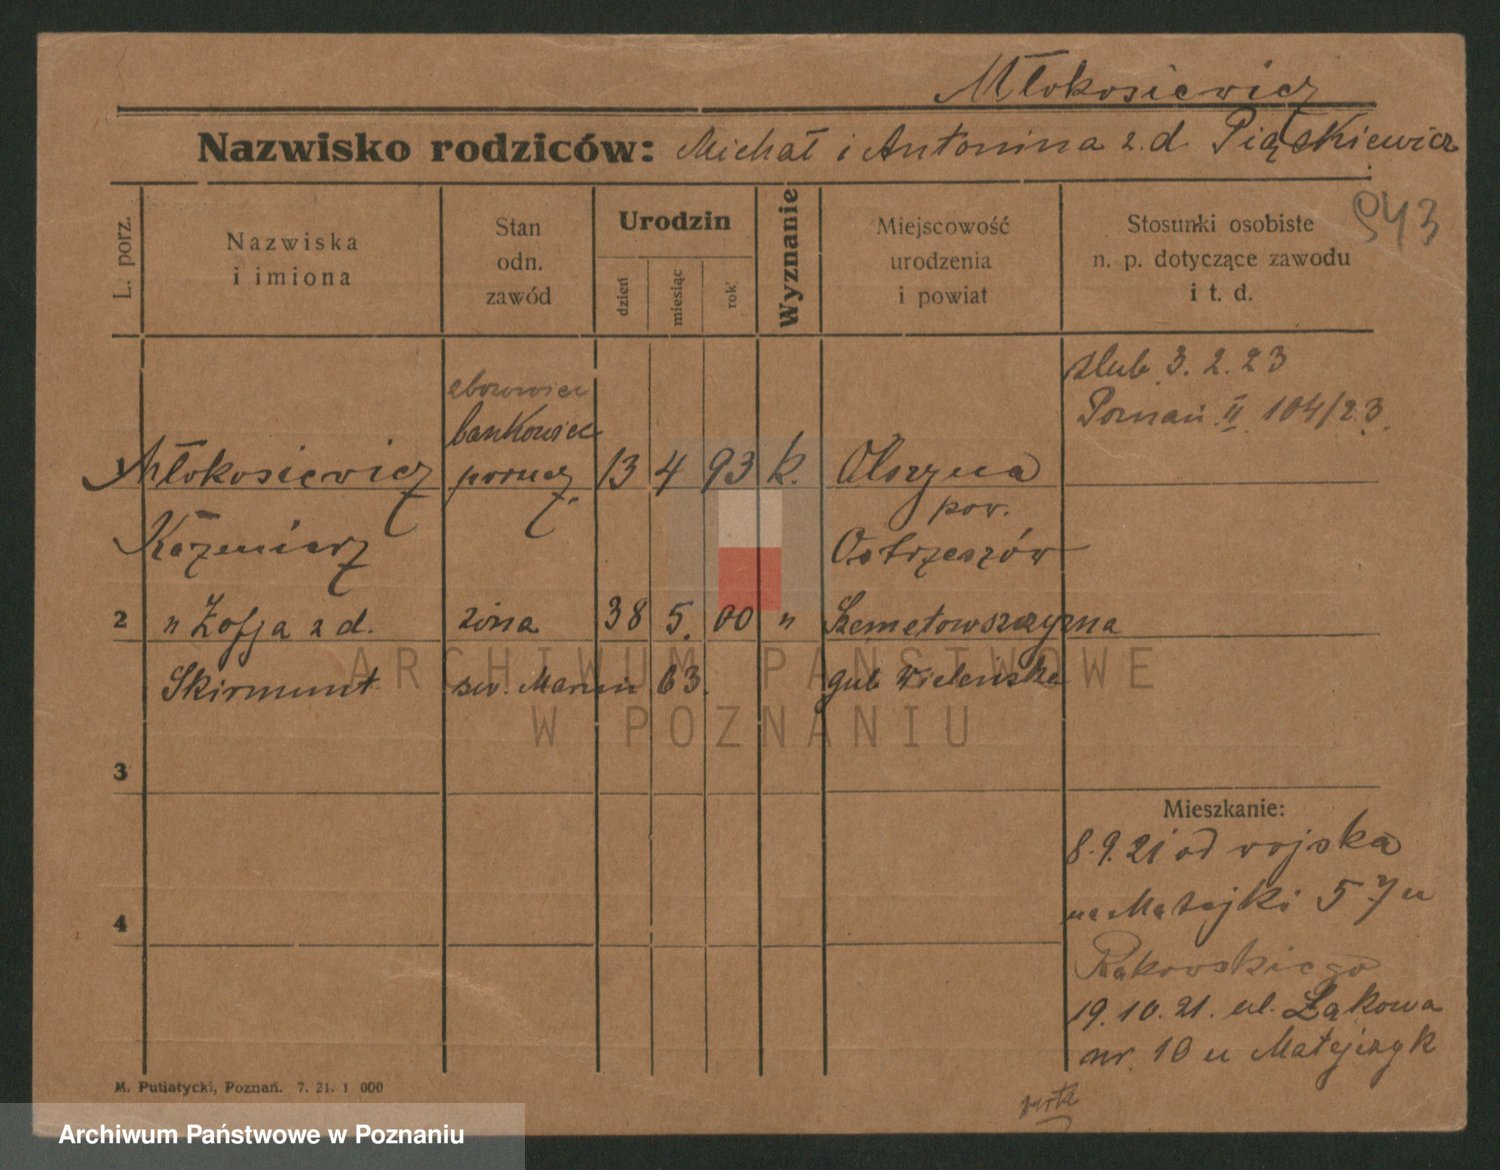 Młokosiewicz
Nazwisko rodziców: Michał i Antonina z d. Piąskiewicz
943
L. porz.
Nazwiska
i imiona
Stan
odn.
zawód
Urodzin
dzień
miesiąc
rok
Wyznanie
Miejscowość
urodzenia
i powiat
Stosunki osobiste
n. p. dotyczące zawodu
i t. d.
ślub 3. 2. 23
Poznań II 104/23.
bankowiec
1 Młokosiewicz porucz. 13 4 93 k. Olszyna
pow.
Kazimierz Ostrzeszów
2 " Zofja z d. żona 38 5. 00 " Szemetowszczyzna
Skirmunt św. Marcin 63. gub Wileńska
3
Mieszkanie:
8. 9. 21 od wojska
na Matejki 57 u
4
Rakowskiego
19. 10. 21. ul. Łąkowa
nr. 10 u Matejczyk
M. Putiatycki, Poznań. 7. 21. 1 000
ARCHIWUM PAŃSTWOWE
W POZNANIU
Archiwum Państwowe w Poznaniu